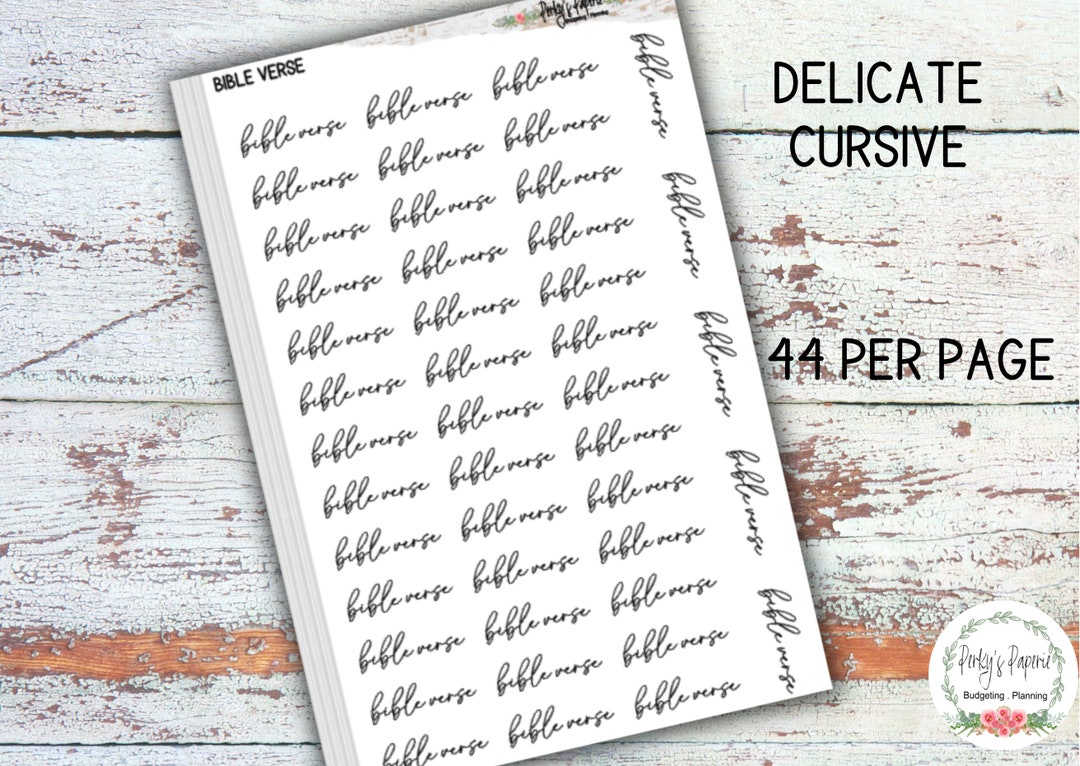 Perky's Paperie
Budgeting . Planning
BIBLE VERSE
bible verse bible verse bible verse
bible verse bible verse bible verse
bible verse bible verse bible verse
bible verse bible verse bible verse
bible verse bible verse bible verse
bible verse bible verse bible verse
bible verse bible verse bible verse
bible verse bible verse bible verse
bible verse bible verse bible verse
bible verse bible verse bible verse
bible verse bible verse bible verse
bible verse bible verse bible verse
bible verse bible verse bible verse
bible verse
bible verse
bible verse
bible verse
bible verse
DELICATE
CURSIVE
44 PER PAGE
Perky's Paperie
Budgeting . Planning